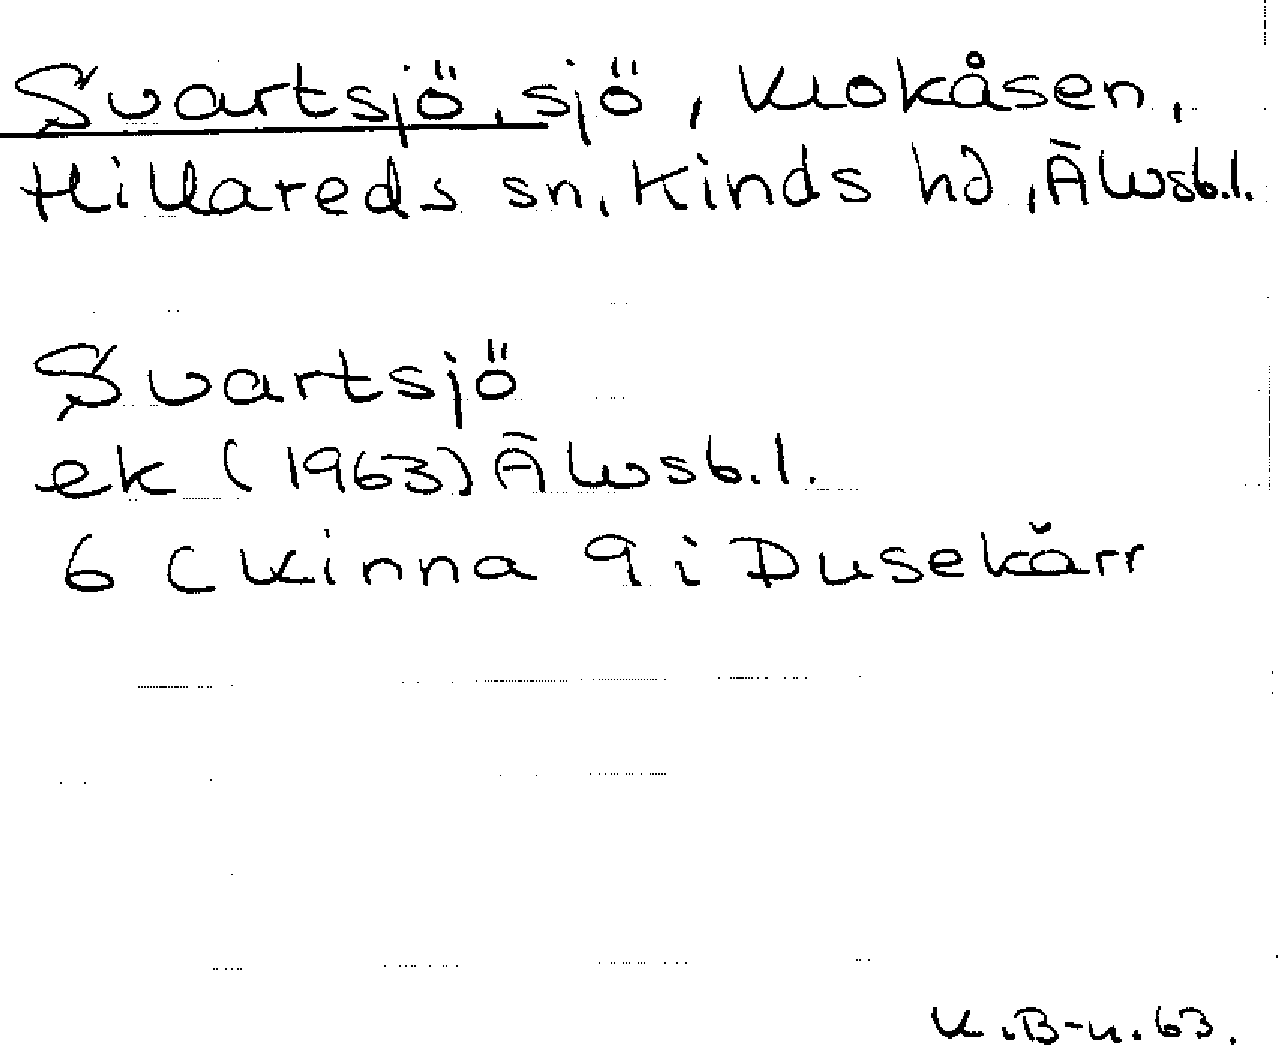 Svartsjö, sjö, Klokåsen,
Hillareds sn, Kinds hd, Älvsb.l.
Svartsjö
ek (1963) Älvsb.l.
6 C Kinna 9 i Dusekärr
K.B-n. 63.